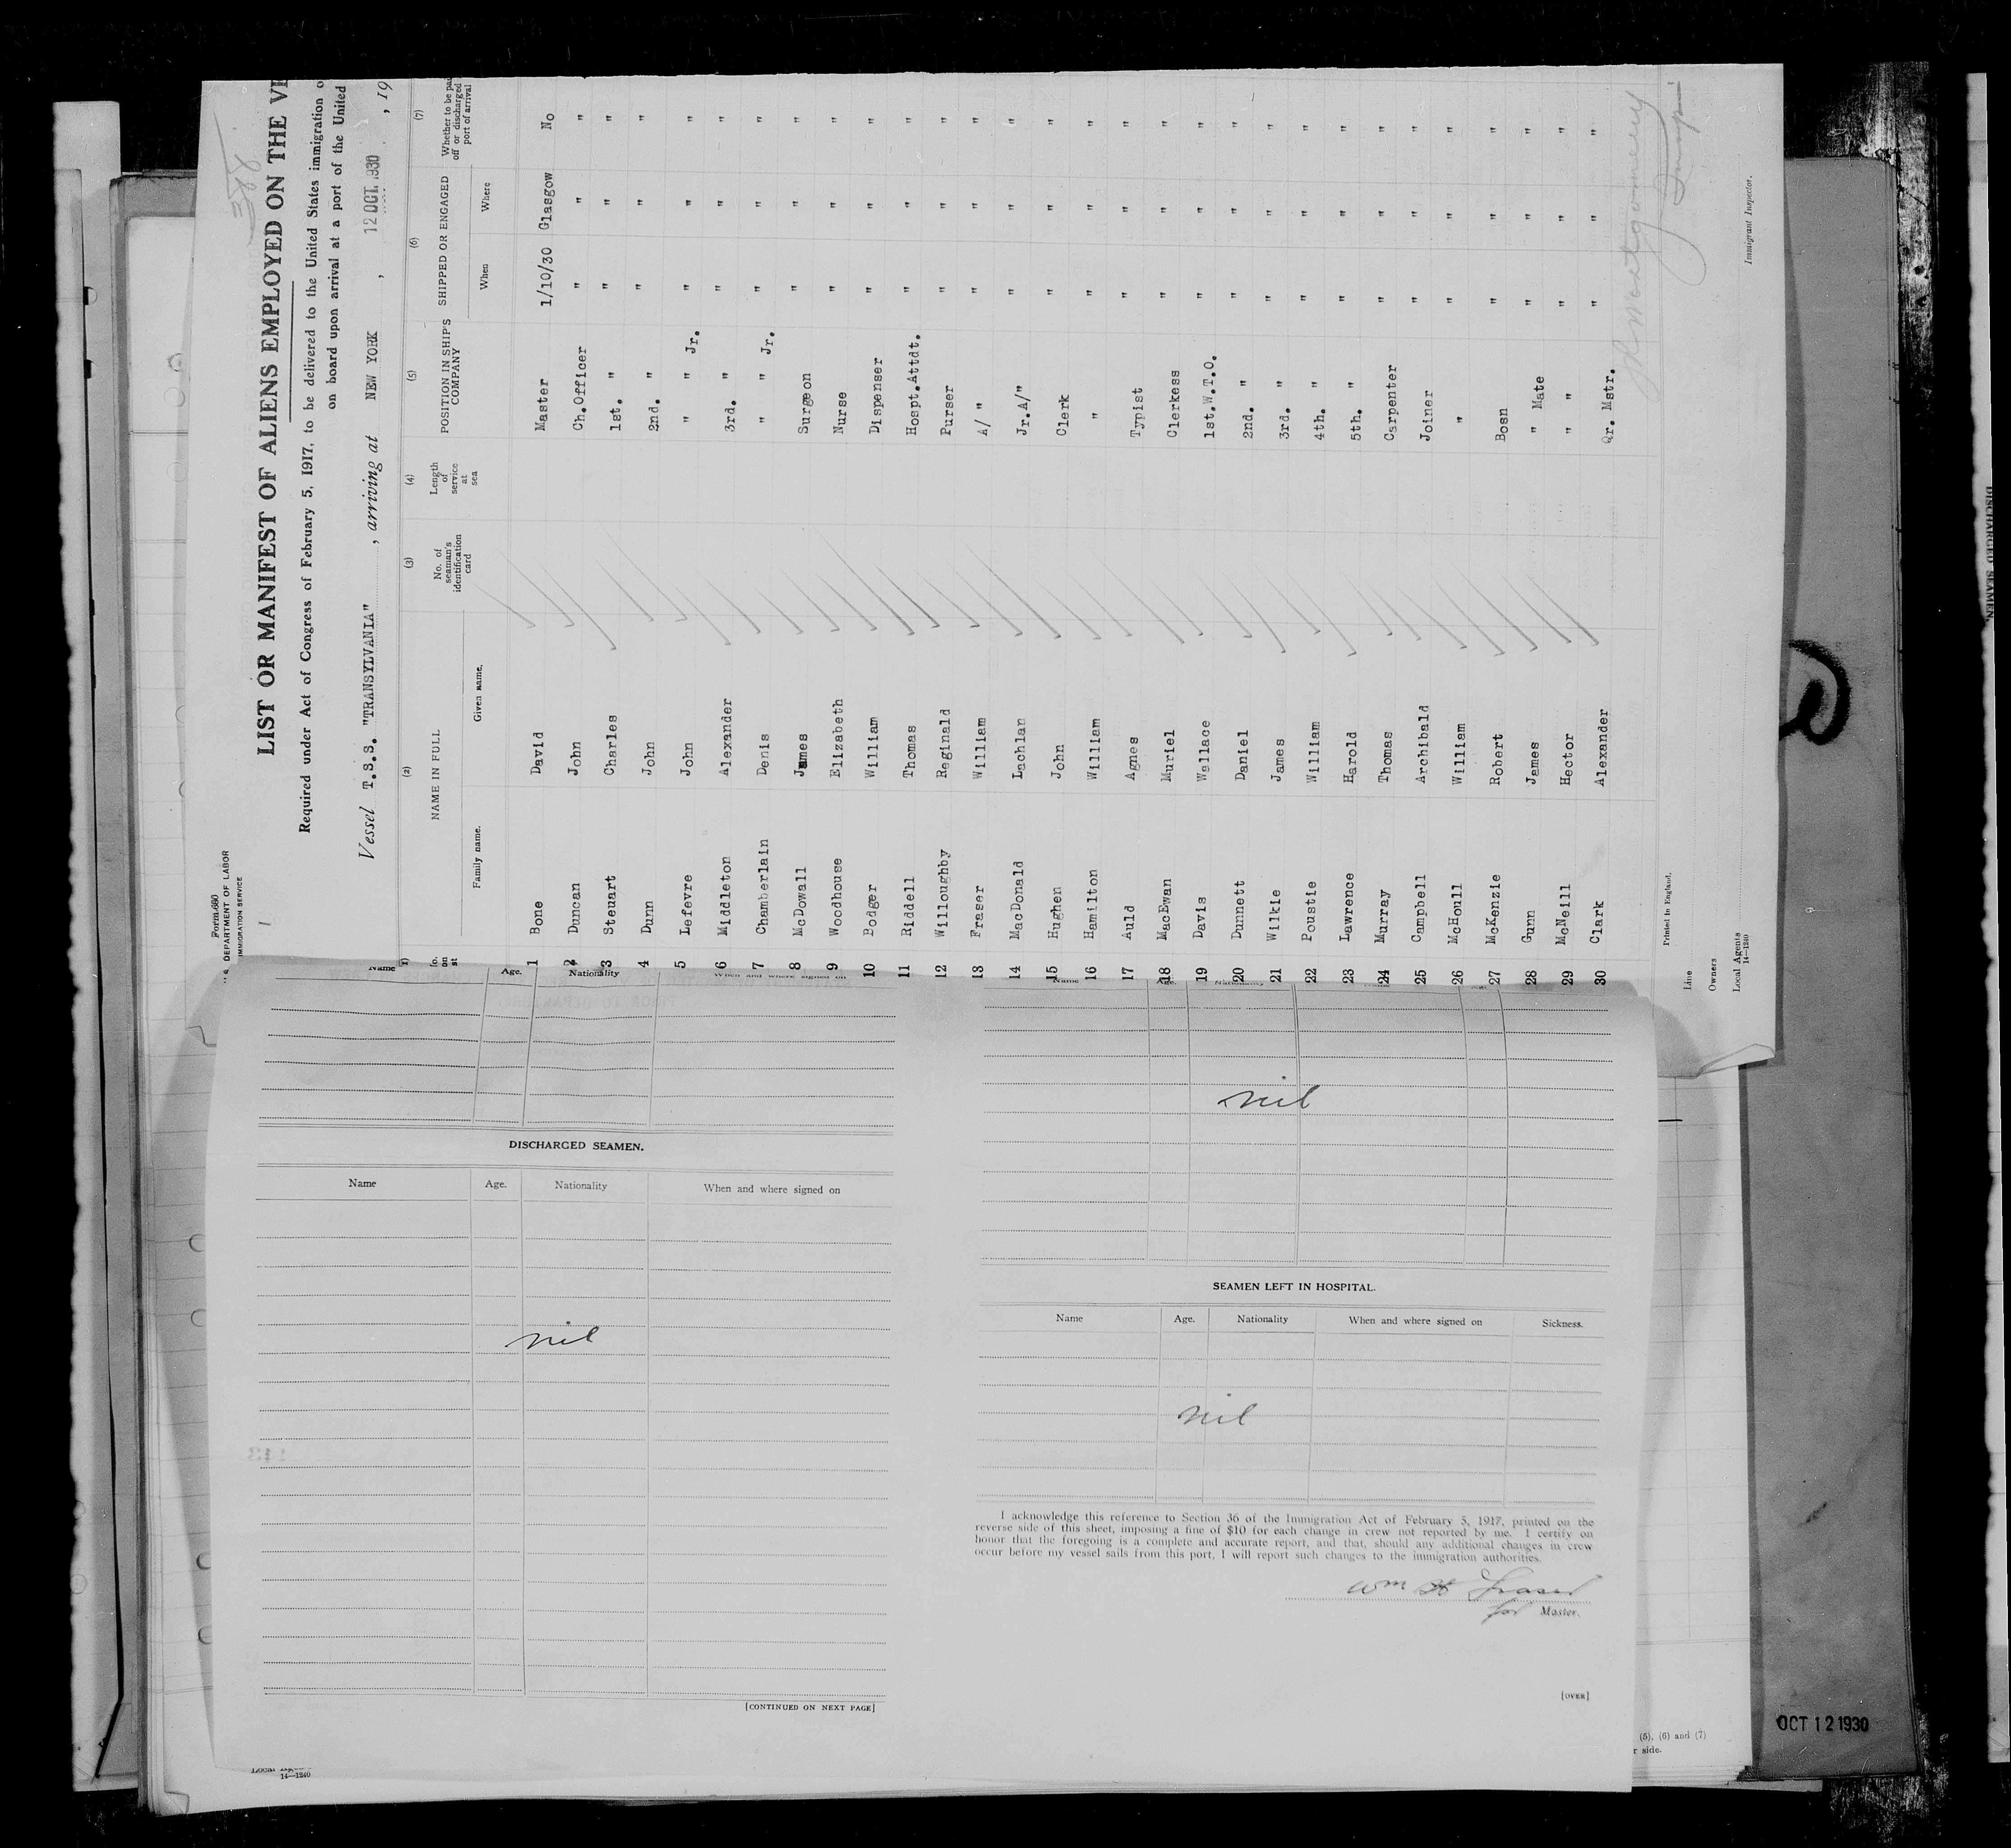 Form 680
U. S. DEPARTMENT OF LABOR
IMMIGRATION SERVICE
LIST OR MANIFEST OF ALIENS EMPLOYED ON THE
Required under Act of Congress of February 5, 1917, to be delivered to the United States immigration
on board upon arrival at a port of the United
Vessel T.S.S. "TRANSYLVANIA", arriving at NEW YORK, 12 OCT. 1930, 19
(2) (3) (4) (5) (6) (7)
NAME IN FULL No. of seaman's identification card Length of service at sea POSITION IN SHIP'S COMPANY SHIPPED OR ENGAGED Whether to be off or discharged port of arrival
Family name. Given name. When Where
1 Bone David Master 1/10/30 Glasgow No
2 Duncan John Ch.Officer " " "
3 Steuart Charles 1st. " " " "
4 Dunn John 2nd. " " " "
5 Lefevre John " " Jr. " " "
6 Middleton Alexander 3rd. " " " "
7 Chamberlain Denis " " Jr. " " "
8 McDowall James Surgeon " " "
9 Woodhouse Elizabeth Nurse " " "
10 Bodger William Dispenser " " "
11 Riddell Thomas Hospt.Attdt. " " "
12 Willoughby Reginald Purser " " "
13 Fraser William A/ " " " "
14 MacDonald Lachlan Jr.A/" " " "
15 Hughen John Clerk " " "
16 Hamilton William " " " "
17 Auld Agnes Typist " " "
18 MacEwan Muriel Clerkess " " "
19 Davis Wallace 1st.W.T.O. " " "
20 Dunnett Daniel 2nd. " " " "
21 Wilkie James 3rd. " " " "
22 Poustie William 4th. " " " "
23 Lawrence Harold 5th. " " " "
24 Murray Thomas Carpenter " " "
25 Campbell Archibald Joiner " " "
26 McHoull William " " " "
27 McKenzie Robert Bosn " " "
28 Gunn James " Mate " " "
29 McNeill Hector " " " " "
30 Clark Alexander Qr. Mstr. " " "
Printed in England.
Line
Owners
Local Agents
14—1240
Montgomery
Insp
Immigrant Inspector.
Name Age. Nationality When and where signed on
DISCHARGED SEAMEN.
Name Age. Nationality When and where signed on
nil
[CONTINUED ON NEXT PAGE]
14—1240
Name Age. Nationality
nil
SEAMEN LEFT IN HOSPITAL.
Name Age. Nationality When and where signed on Sickness.
nil
I acknowledge this reference to Section 36 of the Immigration Act of February 5, 1917, printed on the
reverse side of this sheet, imposing a fine of $10 for each change in crew not reported by me. I certify on
honor that the foregoing is a complete and accurate report, and that, should any additional changes in crew
occur before my vessel sails from this port, I will report such changes to the immigration authorities.
Wm H Fraser
for Master.
[OVER]
(5), (6) and (7)
side.
OCT 12 1930
DISCHARGED SEAMEN.